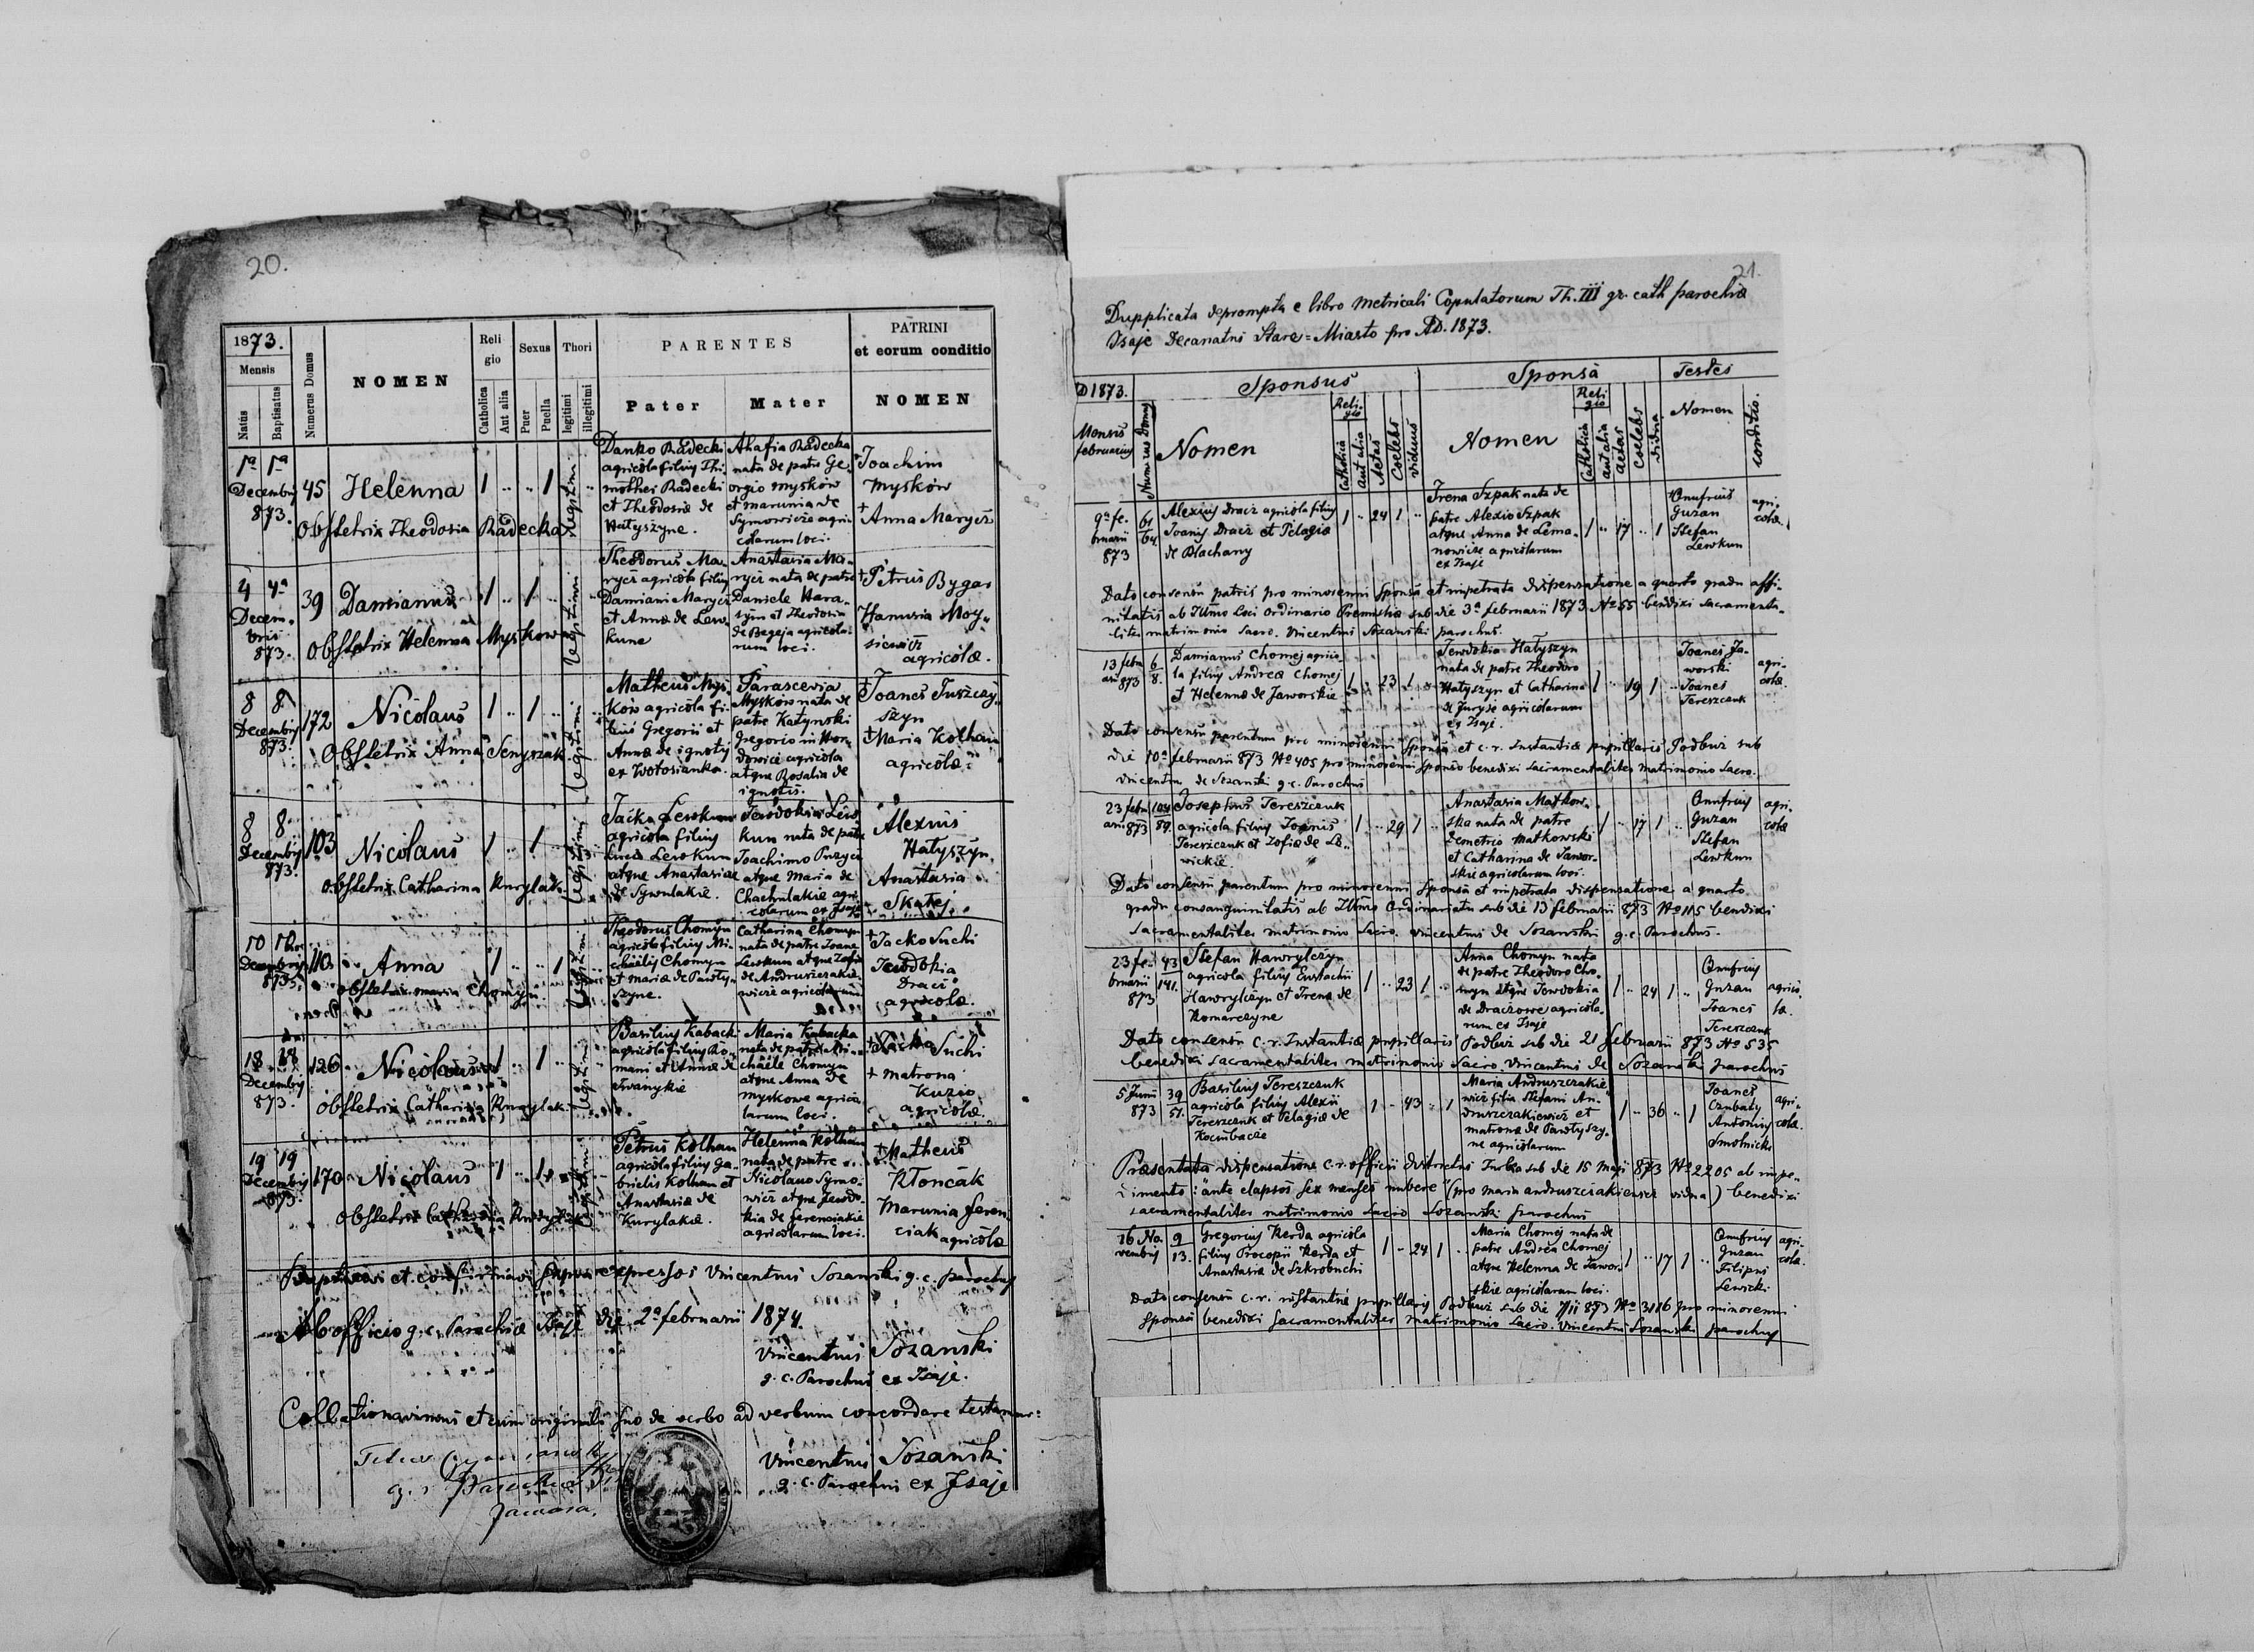 20.
1873.
Mensis
Natus
Baptisatus
Numerus Domus
NOMEN
Reli
gio
Catholica
Aut alia
Sexus
Puer
Puella
Thori
legitimi
illegitimi
PARENTES
Pater
Mater
PATRINI
et eorum conditio
NOMEN
1a 1a
Decembris
873.
45
Helenna
1 .. .. 1
legitimi
Obstetrix Theodosia Radecka
Danko Radecki
agricola filius Thi-
mothei Radecki
et Theodosiæ de
Hatyszyne.
Ahafia Radecka
nata de patre Ge-
orgio Mysków
et Marunia de
Symowicze agri-
colarum loci.
Joachim
Mysków
+
Anna Marycz
4 4a
Decem-
bris
873.
39
Damianus
1 .. 1 ..
legitimi
Obstetrix Helenna Myskowa
Theodorus Ma-
rycz agricola filius
Damiani Marycz
et Annæ de Lew-
kune
Anastasia Ma-
rycz nata de patre
Daniele Hara-
sym et Theodosia
de Begeja agricola-
rum loci.
+Petrus Bygar
Hanusia Moy-
siewicz
agricolæ.
8 8
Decembris
873.
172
Nicolaus
1 .. 1 ..
legitimi
Obstetrix Anna Senyszak.
Matheus Mys-
ków agricola fi-
lius Gregorii et
Annæ de ignoty
ex Wołosianka.
Parascevia
Mysków nata de
patre Katynski
Gregorio in Hor-
dowice agricola
atque Rosalia de
ignotis.
+Joanes Juszczy-
szyn
+Maria Kolhan
agricolæ
8 8
Decembris
873.
103
Nicolaus
1 .. 1 ..
legitimi
Obstetrix Catharina Kurylak.
Jacko Lewkun
agricola filius
Lucæ Lewkun
atque Anastasiæ
de Sywulakie.
Jewdokia Lew-
kun nata de patre
Joachimo Puzycz
atque Maria de
Chachulakie agri-
colarum ex Isaje
Alexius
Hatyszyn
Anastasia
Skałej
10
Decembris
873.
110
Anna
1 .. .. 1
legitimi
Obstetrix Maria Chomyn.
Theodorus Chomyn
agricola filius Mi-
chaelis Chomyn
et Mariæ de Pawły-
szyne.
Catharina Chomyn
nata de patre Joane
Lewkun atque Zofia
de Andruszczakie-
wicze agricolarum
+Jacko Suchi
Jewdokia
Dracz
agricolæ.
18 18
Decembris
873.
126
Nicolaus
1 .. 1 ..
legitimi
Obstetrix Catharina Kurylak.
Basilius Kabacki
agricola filius Ro-
mani et Annæ de
Iwanykie
Maria Kabacka
nata de patre Mi-
chaele Chomyn
atque Anna de
Myskowe agrico-
larum loci.
+Jacko Suchi
+ Matrona
Kuzio
agricolæ.
19 19
Decembris
873.
170
Nicolaus
1 .. 1 ..
legitimi
Obstetrix Catharina Kurylak
Petrus Kolhan
agricola filius Ga-
brielis Kolhan et
Anastasiæ de
Kurylakie.
Helenna Kolhan
nata de patre
Nicolauo Symo-
wicz atque Jewdo-
kia de ferenciakie
agricolarum loci.
+Matheus
Klončak
Marunia feren-
ciak agricolæ
Baptisavi et confirmavi supra expressos Vincentius Sozanski g.c. parochus
Ab officio g.c. Parochiæ Isaje die 2a februarii 1874.
Vincentius Sozanski
g.c. Parochus ex Isaje.
Collationavimus et cum originali suo de verbo ad verbum concordare testamur:
Vincentius Sozanski
g.c. Parochus ex Isaje
21.
Dupplicata deprompta e libro metricali Copulatorum Th. III gr. cath parochiæ
Isaje Decanatus Stare=Miasto pro AD. 1873.
D 1873.
Sponsus
Sponsa
Testes
Mensis
februarius
Numerus Domus
Nomen
Reli-
gio
Catholica
Aut alia
Aetas
Coelebs
viduus
Nomen
Reli
gio
Catholica
aut alia
aetas
Coelebs
vidua
Nomen
conditio.
9a fe-
bruarii
873
61
64
Alexius Dracz agricola filius
Joanis Dracz et Pelagiæ
de Blachany
1 .. 24 1 ..
Irena Szpak nata de
patre Alexio Szpak
atque Anna de Lema-
nowicze agricolarum
ex Isaje
1 .. 17 .. 1
Onufrius
Guzan
Stefan
Lewkun
agri-
colæ.
Dato consensu patris pro minorenni sponsa et impetrata dispensatione a quarto gradu affi-
nitatis ab Illmo Loci Ordinario Premisliæ sub die 3a februarii 1873 No 55 benedixi sacramenta-
liter matrimonio sacro. Vincentius Sozanski parochus.
13 febru
arii 873
6
8.
Damianus Chomej agrico-
la filius Andreæ Chomej
et Helennæ de Jaworskie
1 .. 23 1 ..
Jewdokia Hatyszyn
nata de patre Theodoro
Hatyszyn et Catharina
de Juryje agricolarum
ex Isaje.
1 .. 19 1 ..
Joanes Ja-
worski
Joanes
Tereszczuk
agri-
colæ.
Dato consensu parentum pro minorenni sponsa et c.r. Instantiæ pupillaris Podbuż sub
die 10a februarii 873 No 405 pro minorenni sponso benedixi sacramentaliter matrimonio sacro.
Vincentius de Sozanski g.c. Parochus
23 febru
arii 873
104
89.
Josephus Tereszczuk
agricola filius Joanis
Tereszczuk et Zofiæ de Le-
wickie.
1 .. 29 1 ..
Anastasia Matkow-
ska nata de patre
Demetrio Matkowski
et Catharina de Jawor-
skie agricolarum loci.
1 .. 17 1 ..
Onufrius
Guzan
Stefan
Lewkun
agri-
colæ
Dato consensu parentum pro minorenni sponsa et impetrata dispensatione a quarto
gradu consanguinitatis ab Illmo Ordinariatu sub die 13 februarii 873 No 115 benedixi
sacramentaliter matrimonio sacro. Vincentius de Sozanski g.c. Parochus.
23 fe-
bruarii
873
43
141.
Stefan Hawrylczyn
agricola filius Eustachii
Hawrylczyn et Irenæ de
Komarczyne
1 .. 23 1 ..
Anna Chomyn nata
de patre Theodoro Cho-
myn atque Jewdokia
de Draczowe agricola-
rum ex Isaje
1 .. 24 1 ..
Onufrius
Guzan
Joanes
Tereszczuk
agrico-
læ.
Dato consensu c.r. Instantiæ pupillaris Podbuż sub die 21 februarii 873 No 535
benedixi sacramentaliter matrimonio sacro. Vincentius de Sozanski parochus
5 Junii
873
39
51.
Basilius Tereszczuk
agricola filius Alexii
Tereszczuk et Pelagiæ de
Kocimbacze
1 .. 43 .. 1
Maria Andruszczakie
wicz filia Stefani An-
druszczakiewicz et
Matrona de Pawłyszy-
ne agricolarum
1 .. 36 .. 1
Joanes
Czubaty
Antonius
Smolnicki
agri-
colæ.
Præsentata dispensatione c.r. officii districtus Turka sub die 15 Maji 873 No 2205 ab impe-
dimento: "ante elapsos sex menses nubere" (pro Maria Andruszczakiewicz vidua) benedixi
sacramentaliter matrimonio sacro Sozanski parochus
16 No-
vembris
9
13.
Gregorius Kerda agricola
filius Procopii Kerda et
Anastasiæ de Szkrobuchi
1 .. 24 1 ..
Maria Chomej nata de
patre Andrea Chomej
atque Helenna de Jawor-
skie agricolarum loci.
1 .. 17 1 ..
Onufrius
Guzan
Filipus
Lewicki
agri-
colæ.
Dato consensu c.r. instantiæ pupillaris Podbuż sub die 7/11 873 No 3186 pro minorenni
sponsa benedixi sacramentaliter matrimonio sacro. Vincentius Sozanski parochus